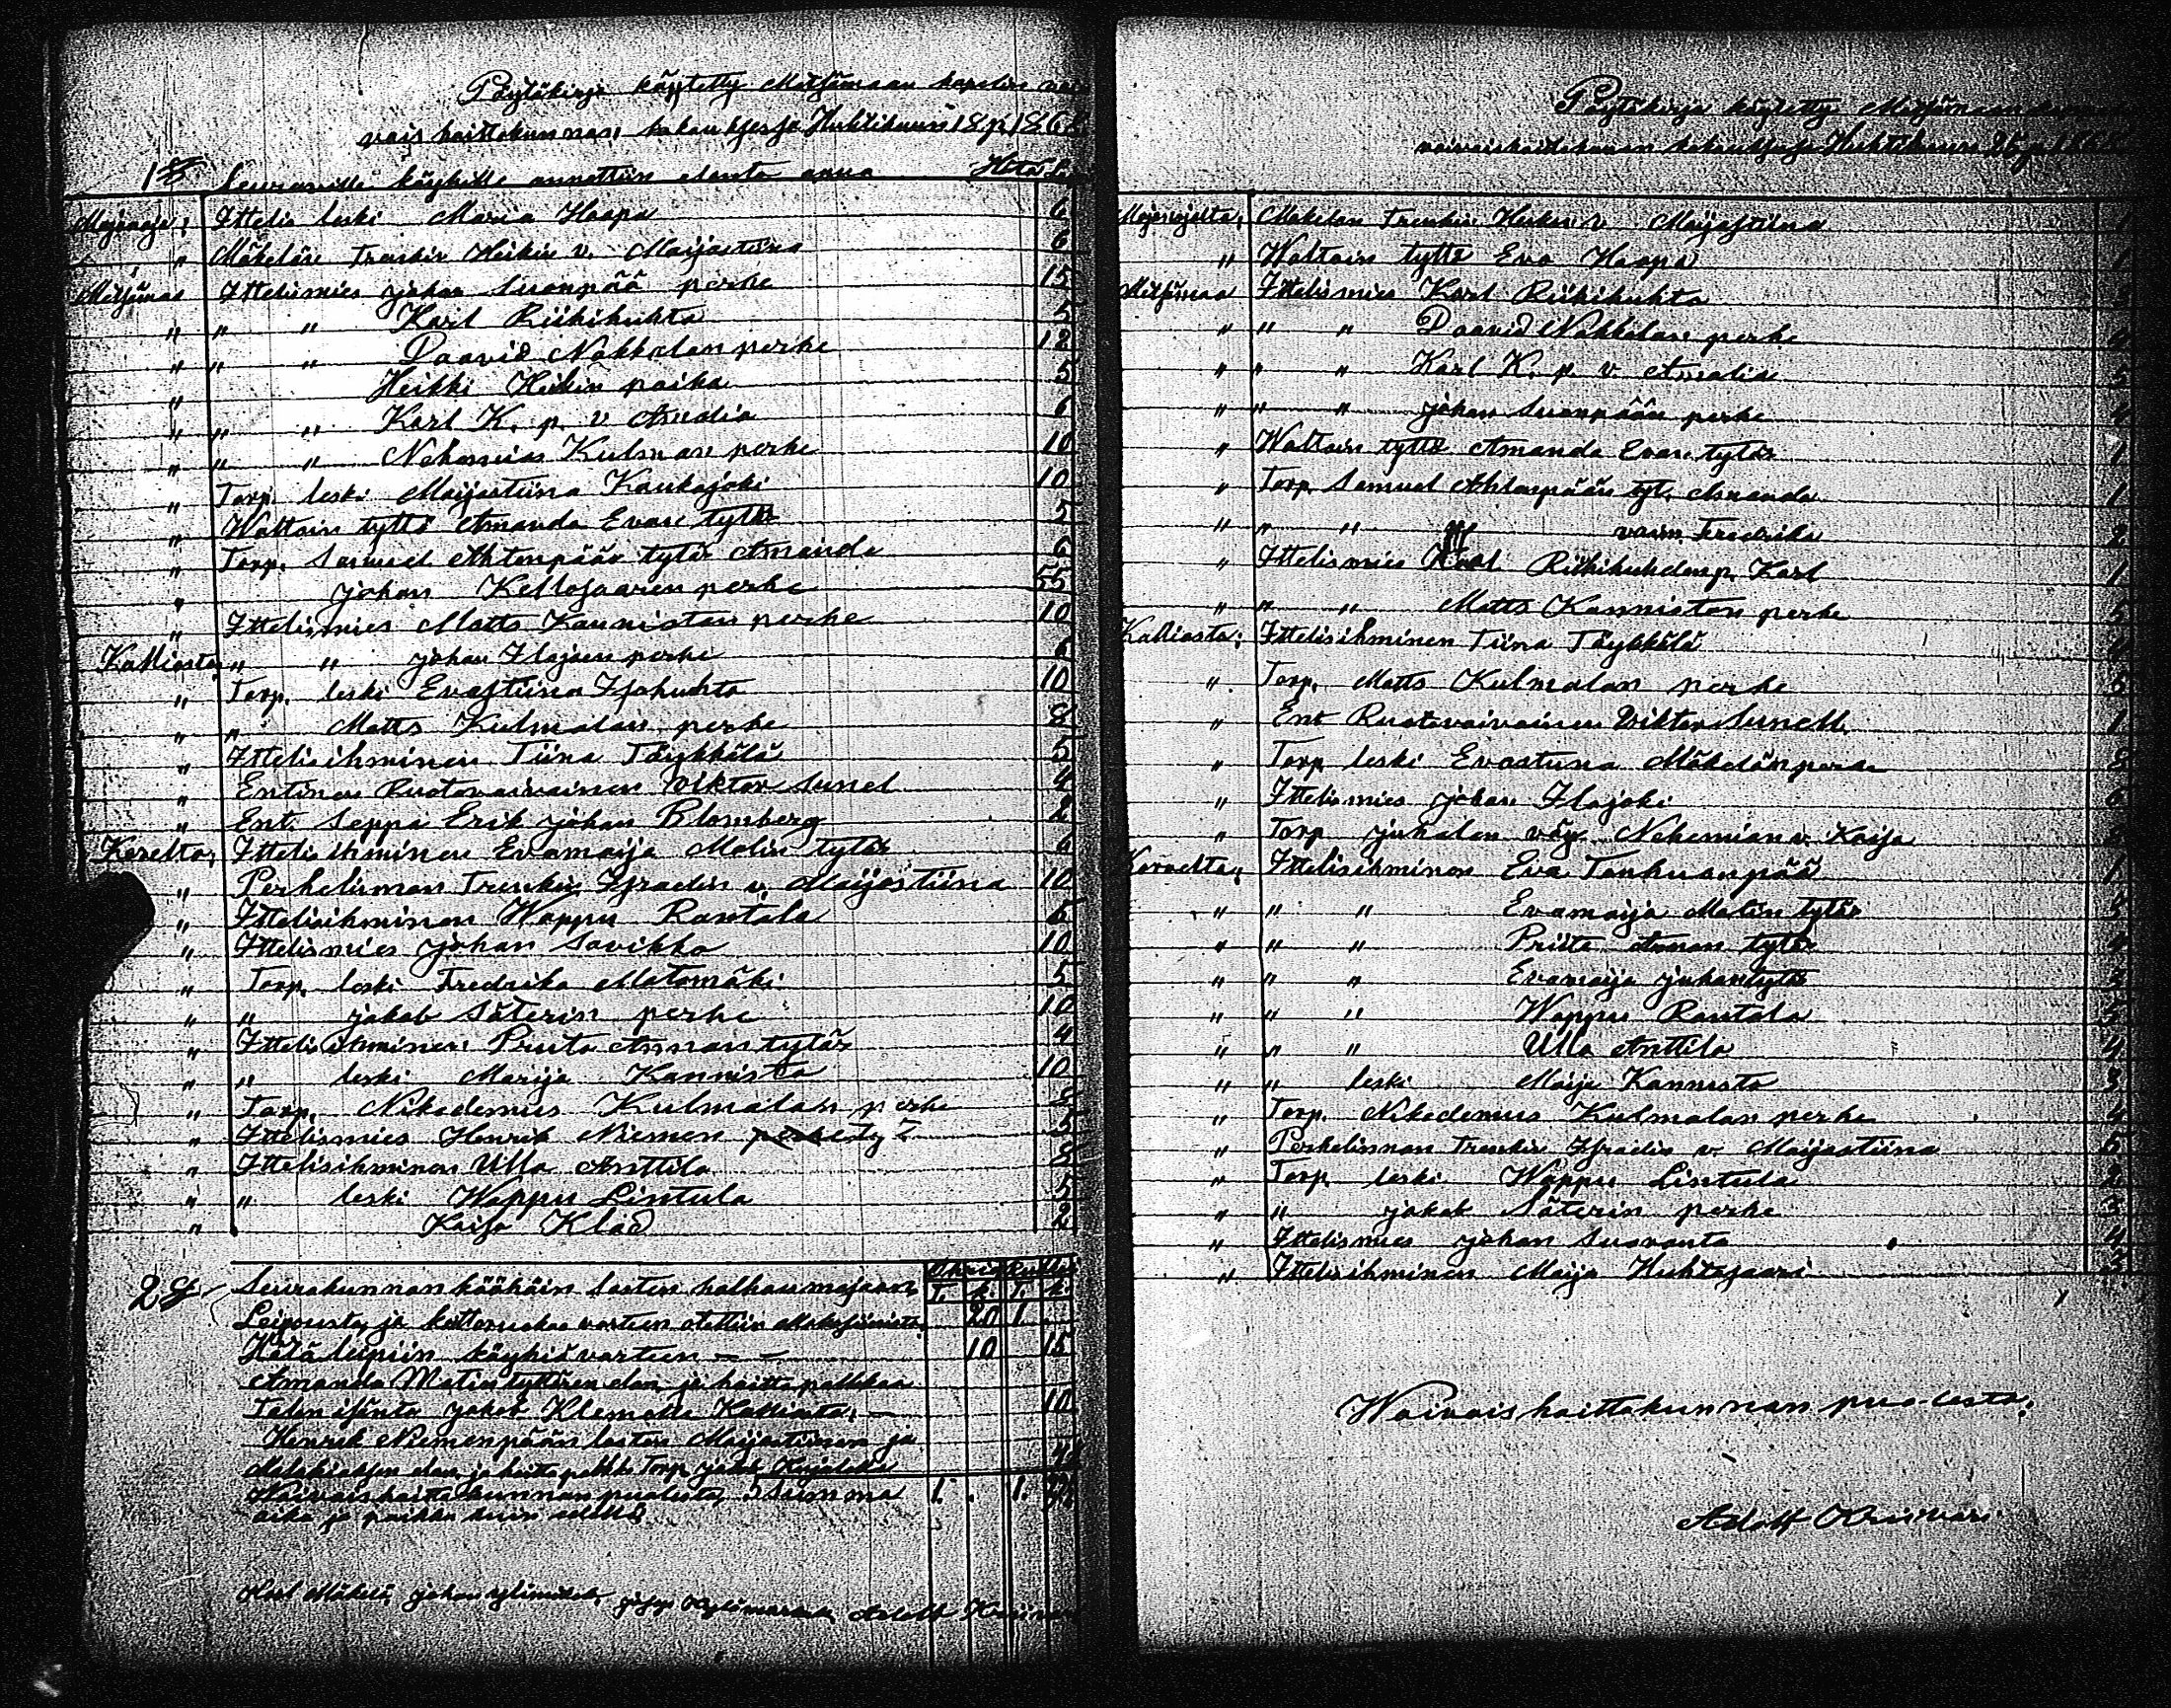 Pöytäkirja käytetty Metsämaan kapelin vai
vais hoittokunnan kokouksessa Huhtikuun 18 p 1868.
1 § Seuraaville köyhille annettiin elanto apua
Ittelis leski Maria Haapa 6
" Mäkelän Trenkin Heikin v. Maijastiina 6
Metsämaa Ittelismies johan Suonpää perhe 15
" " " Karl Riikihuhta 5
" " " Daavid Nokkalan perhe 12
" Heikki Heikin poika 5
" " " Karl K. p. v Amalia 6
" " " Nehemias Kulman perhe 10
" Torp. leski Maijastiina Kaukajoki 10
" Waltoin tyttö Amanda Evan tytär 5
" Torp. Samuel Ahtonpään tytär Amanda 6
" johan Kellosaaren perhe 55
" Ittelismies Matts Kanniston perhe 10
Kalliosta; " " johan Ilajoen perhe 6
" Torp. leski Evastiina Isohuhta 10
" " Matts Kulmalan perhe 8
" Ittelisihminen Tiina Töykkälä 5
" Entinen Ruotovaivainen Viktor Sunel 4
" Ent. Seppä Erik johan Blomberg 2
Ittelisihminen Evamaija Matin tytär 6
" Perhelisman Trenkin Israelin v. Maijastiina 10
" Ittelisihminen Wappu Rantala 5
" Ittelismies johan Savikko 10
" Torp. leski Fredrika Matomäki 5
" " jakob Säterin perhe 10
" Ittelisihminen Priita Annan tytär 4
" " leski Marija Kannisto 10
" Torp. Nikodemus Kulmalan perhe 8
" Ittelismies Henrik Niemen 5
" Ittelisihminen Ulla Anttila 8
" " leski Wappu Lintula 5
" Kaisa Klad 2
2 § Seurakunnan köyhäin lasten
Leivoista ja varten otettiin 20 1.
Hätä leipiin köyhiä varten — — 10 15
Amanda Matin tyttären elan ja hoitto palkkaa
Talon isäntä jakob Klemola Kalliosta; — 10
Henrik Niemenpään lasten Maijastiinan ja
elan ja hoitto palkka Torp. jakob
Waivaishoittokunnan puolesta, Summa 1. . 1.
aika ja paikka kuin edellä
Karl Mäkelä, johan Adolf
Pöytäkirja käytetty Metsämaan
vaivaishoitokunnan kokouksessa Huhtikuun 25 p. 1868
Mäkelän Trenkin Heikin v Maijastiina 1
" Waltoin tyttö Eva Haapa 1
Metsämaa Ittelismies Karl Riikihuhta
" " " Daavid Nokkalan perhe
" " " Karl K. p. v. Amalia 5
" " " johan Suonpään perhe 4
" Waltoin tyttö Amanda Evan tytär 1
" Torp. Samuel Ahtonpään tyt. Amanda 1
" " " vaim Fredrika 2
" Ittelismies Karl Riikihuhdan p. Karl 1
" " " Matts Kanniston perhe 5
Kalliosta; Ittelisihminen Tiina Töykkälä
" Torp. Matts Kulmalan perhe 5
" Ent Ruotovaivainen Wiktor Sunell 1
" Torp leski Evastiina Mäkelän perhe 8
" Ittelismies johan Ilajoki 6
" Torp juhalan väy. Nehemian v. Kaisa
Ittelisihminen Eva Tanhuanpää 1
" " " Evamaija Matin tytär
" " " Priita Annan tytär 4
" " " Evamaija juhan tytär 3
" " " Wappu Rantala 5
" " " Ulla Anttila 4
" " leski Maija Kannisto 3
" Torp. Nikodemus Kulmalan perhe 4
" Perhelisman Trenkin Israelin v. Maijastiina 5
" Torp leski Wappu Lintula 2
" " jakob Säterin perhe 3
" Ittelismies johan Suovanta 4
" Ittelisihminen Maija Huhtasaari 3
Waivaishoittokunnan puolesta;
Adolf